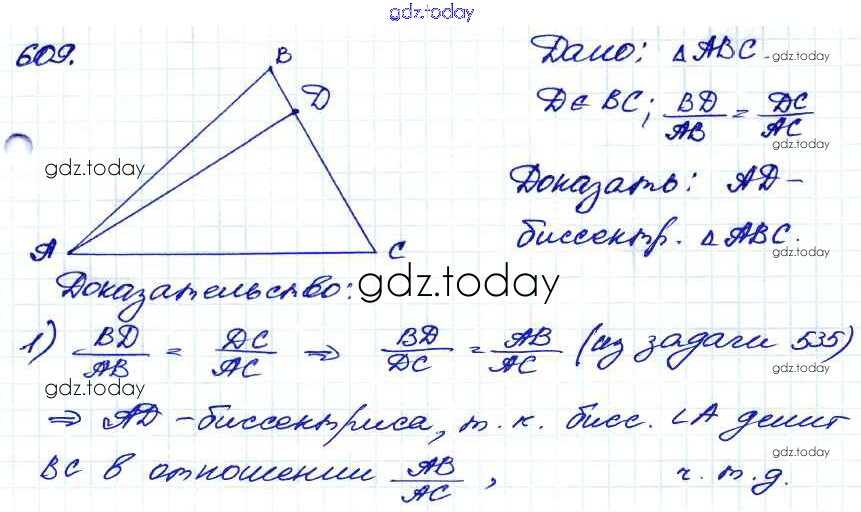 gdz.today
609.
B
D
A
C
Дано: △ABC
gdz.today
D∈BC; BD/AB = DC/AC
gdz.today
gdz.today
Доказать: AD –
gdz.today
биссектр. △ABC.
gdz.today
Доказательство:
gdz.today
1) BD/AB = DC/AC ⇒ BD/DC = AB/AC (из задачи 535)
gdz.today
gdz.today
⇒ AD – биссектриса, т. к. бисс. ∠A делит
gdz.today
BC в отношении AB/AC, ч. т. д.
gdz.today